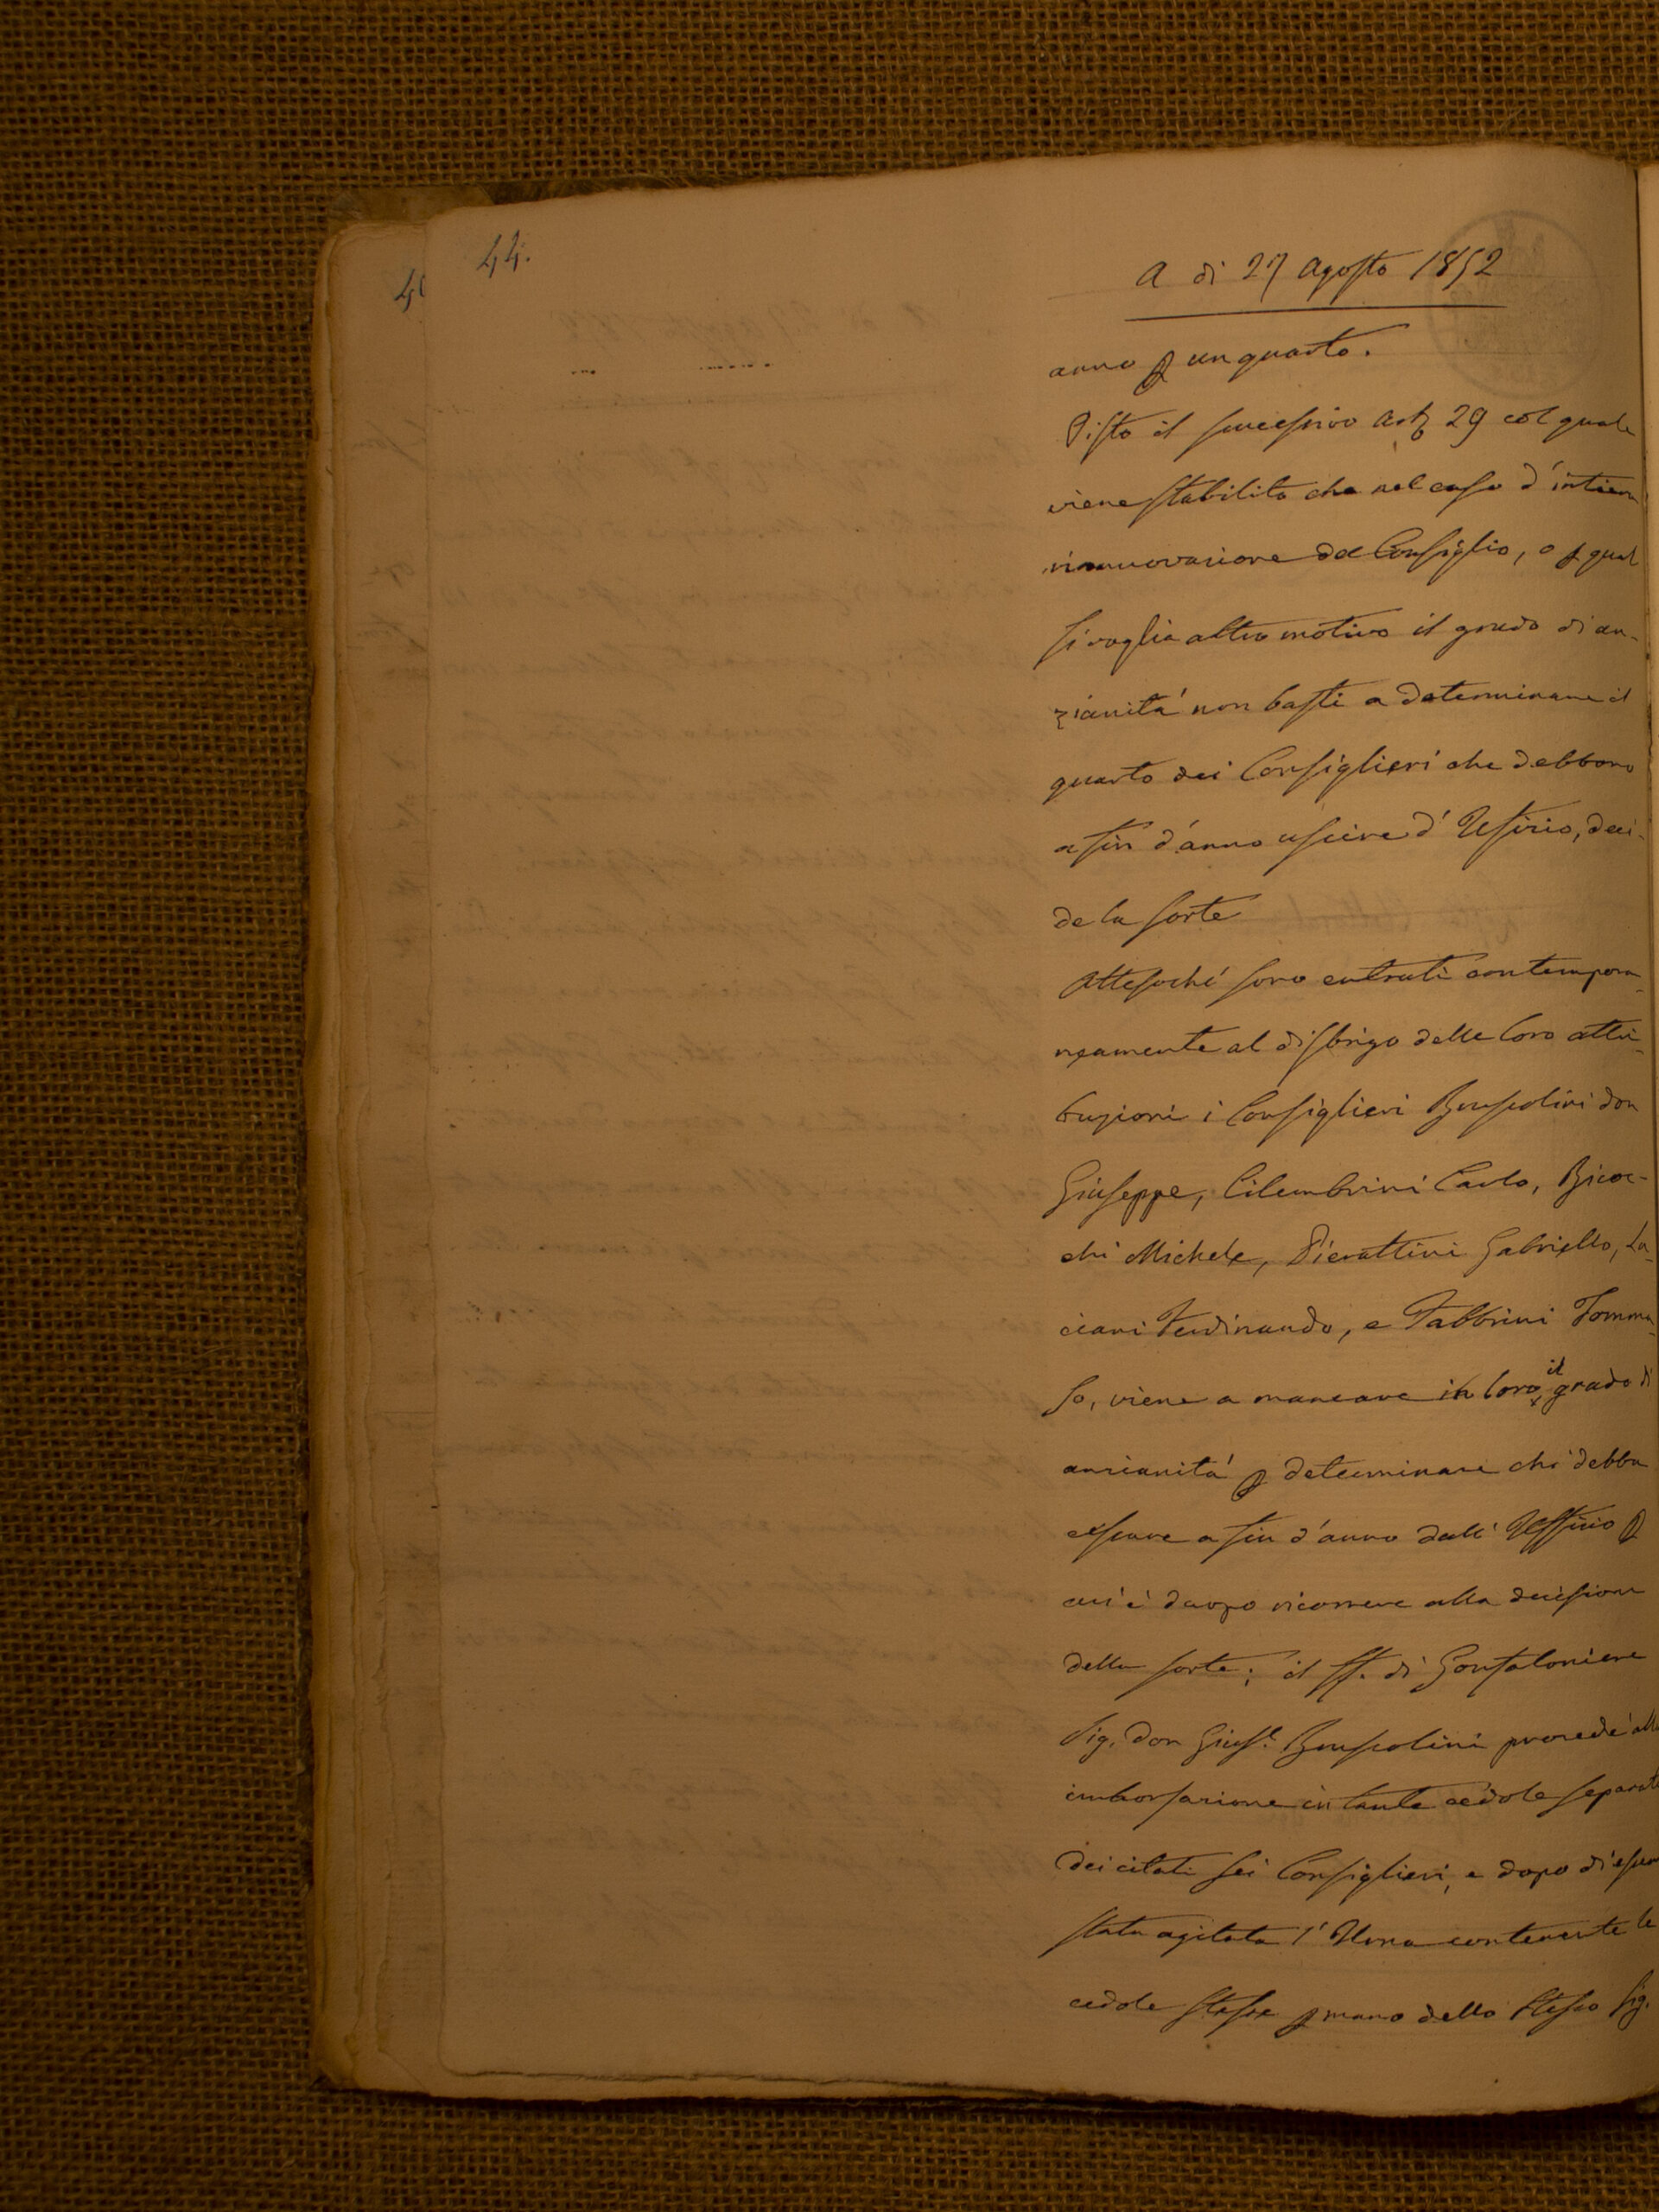 44.
A di 27 Agosto 1852
anno p un quarto.
Visto il successivo Art 29 col quale
viene stabilito che nel caso d'intiera
rinnuovazione del Consiglio, o p qual
si voglia altro motivo il grado di an-
zianità non basti a determinare il
quarto dei Consiglieri che debbono
a fin d'anno uscire d'Ufizio, deci-
de la sorte
Attesochè sono entrati contempora-
neamente al disbrigo delle loro attri-
buzioni i Consiglieri Bruscolini don
Giuseppe, Cilembrini Carlo, Bicoc-
chi Michele, Pierattini Gabriello, La-
ciani Ferdinando, e Fabbrini Tomma-
so, viene a mancare in loro il grado di
anzianità p determinare chi debba
cessare a fin d'anno dall'Uffizio p
cui è d'uopo ricorrere alla decisione
della sorte; il ff. di Gonfaloniere
Sig. Don Gius.e Bruscolini procedè alla
imborsazione in tante cedole separate
dei citati sei Consiglieri, e dopo di essere
stata agitata l'Urna contenente le
cedole stesse p mano dello stesso Sig.